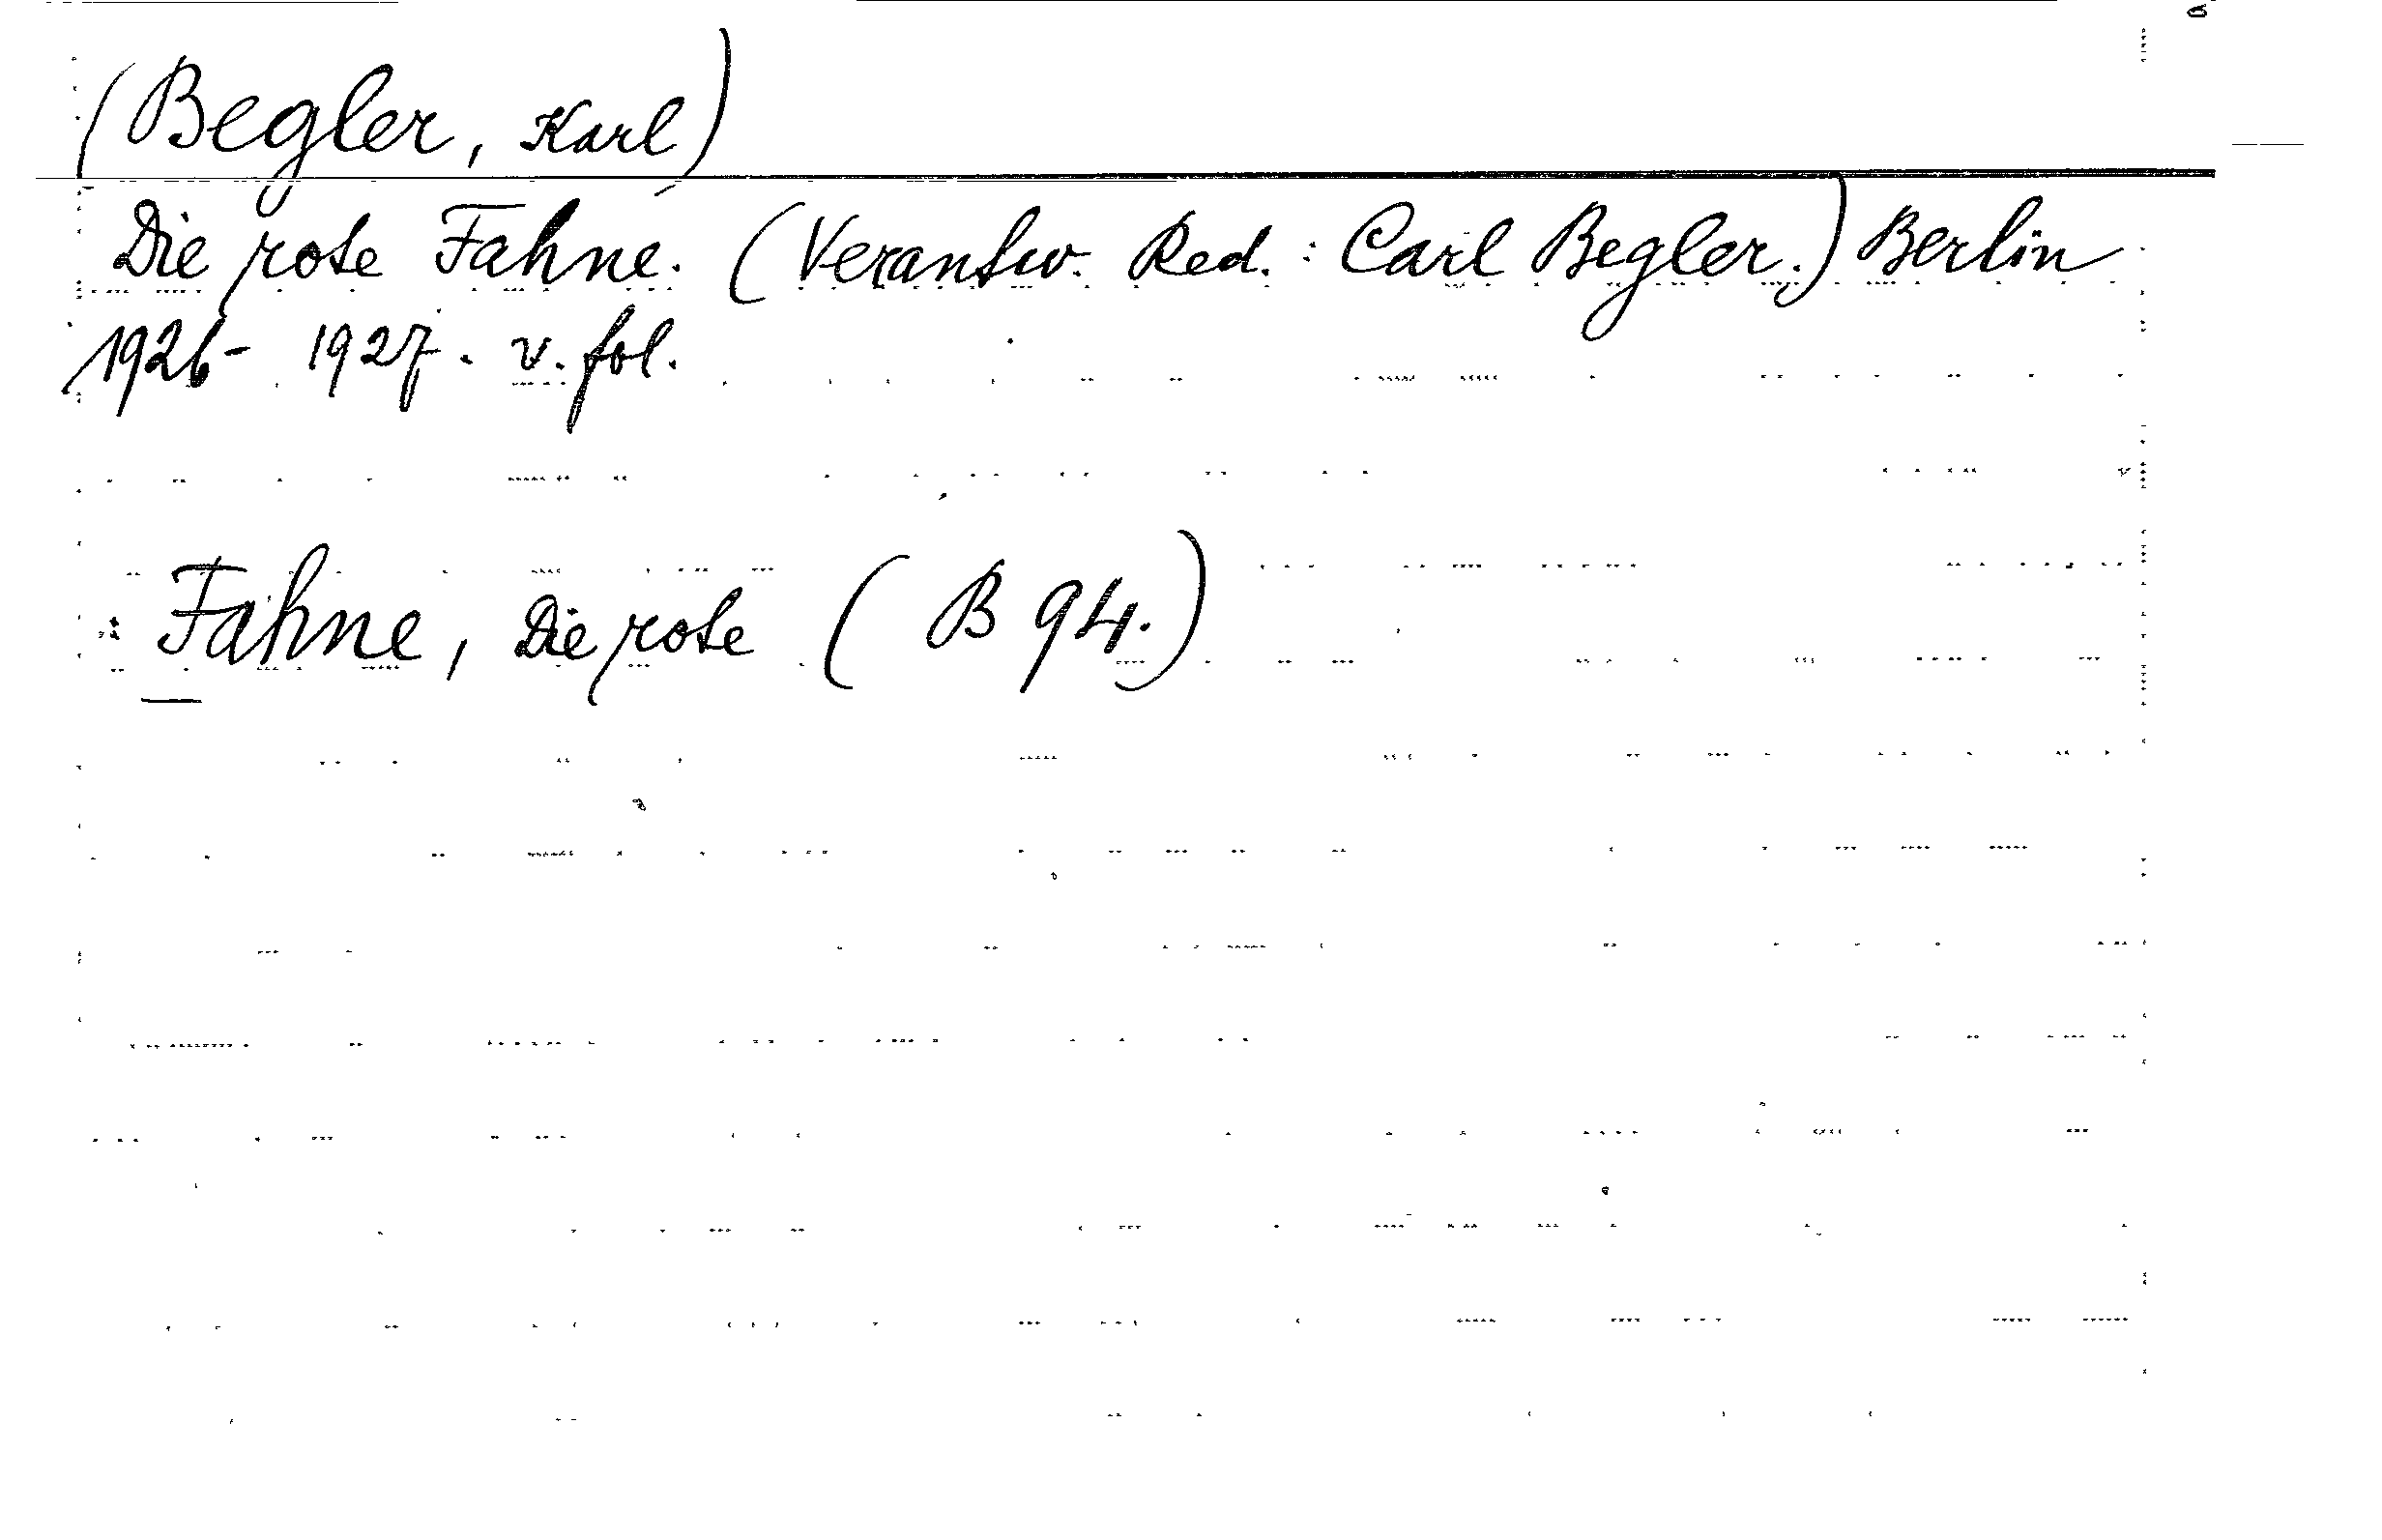 (Begler, Karl)
Die rote Fahne. (Verantw. Red. : Carl Begler.) Berlin
1926- 1927. v. fol.
Fahne, Die rote (B 94.)